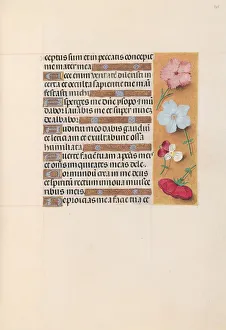 ceptus sum et in peccatis concepit
me mater mea
Ecce enim veritatem dilexisti in
certa et occulta sapientie tue mani
festasti michi
Asperges me dne ysopo et mun
dabor lavabis me et super nivez
dealbabor
Auditui meo dabis gaudiu
et leticiam et exultabunt ossa
humiliata
Averte faciem tuam a peccatis meis
et omnes iniquitates meas dele
Cor mundum crea in me deus
et spiritu rectum innova in visce
ribus meis
Ne proicias me a facie tua et